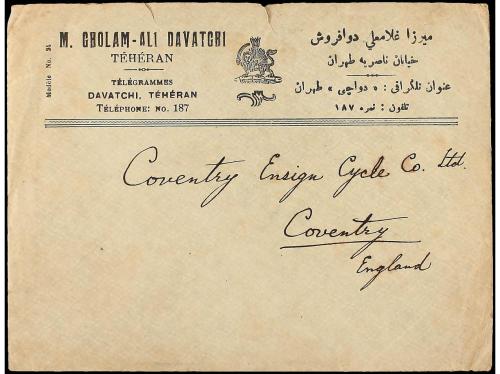 Modèle No. 31
M. GHOLAM-ALI DAVATCHI
TÉHÉRAN
TÉLÉGRAMMES
DAVATCHI, TÉHÉRAN
TÉLÉPHONE: NO. 187
ميرزا غلامعلي دوافروش
خيابان ناصريه طهران
عنوان تلگرافی: «دواچی» طهران
تلفون: نمره ۱۸۷
Coventry Ensign Cycle Co. Ltd.
Coventry
England